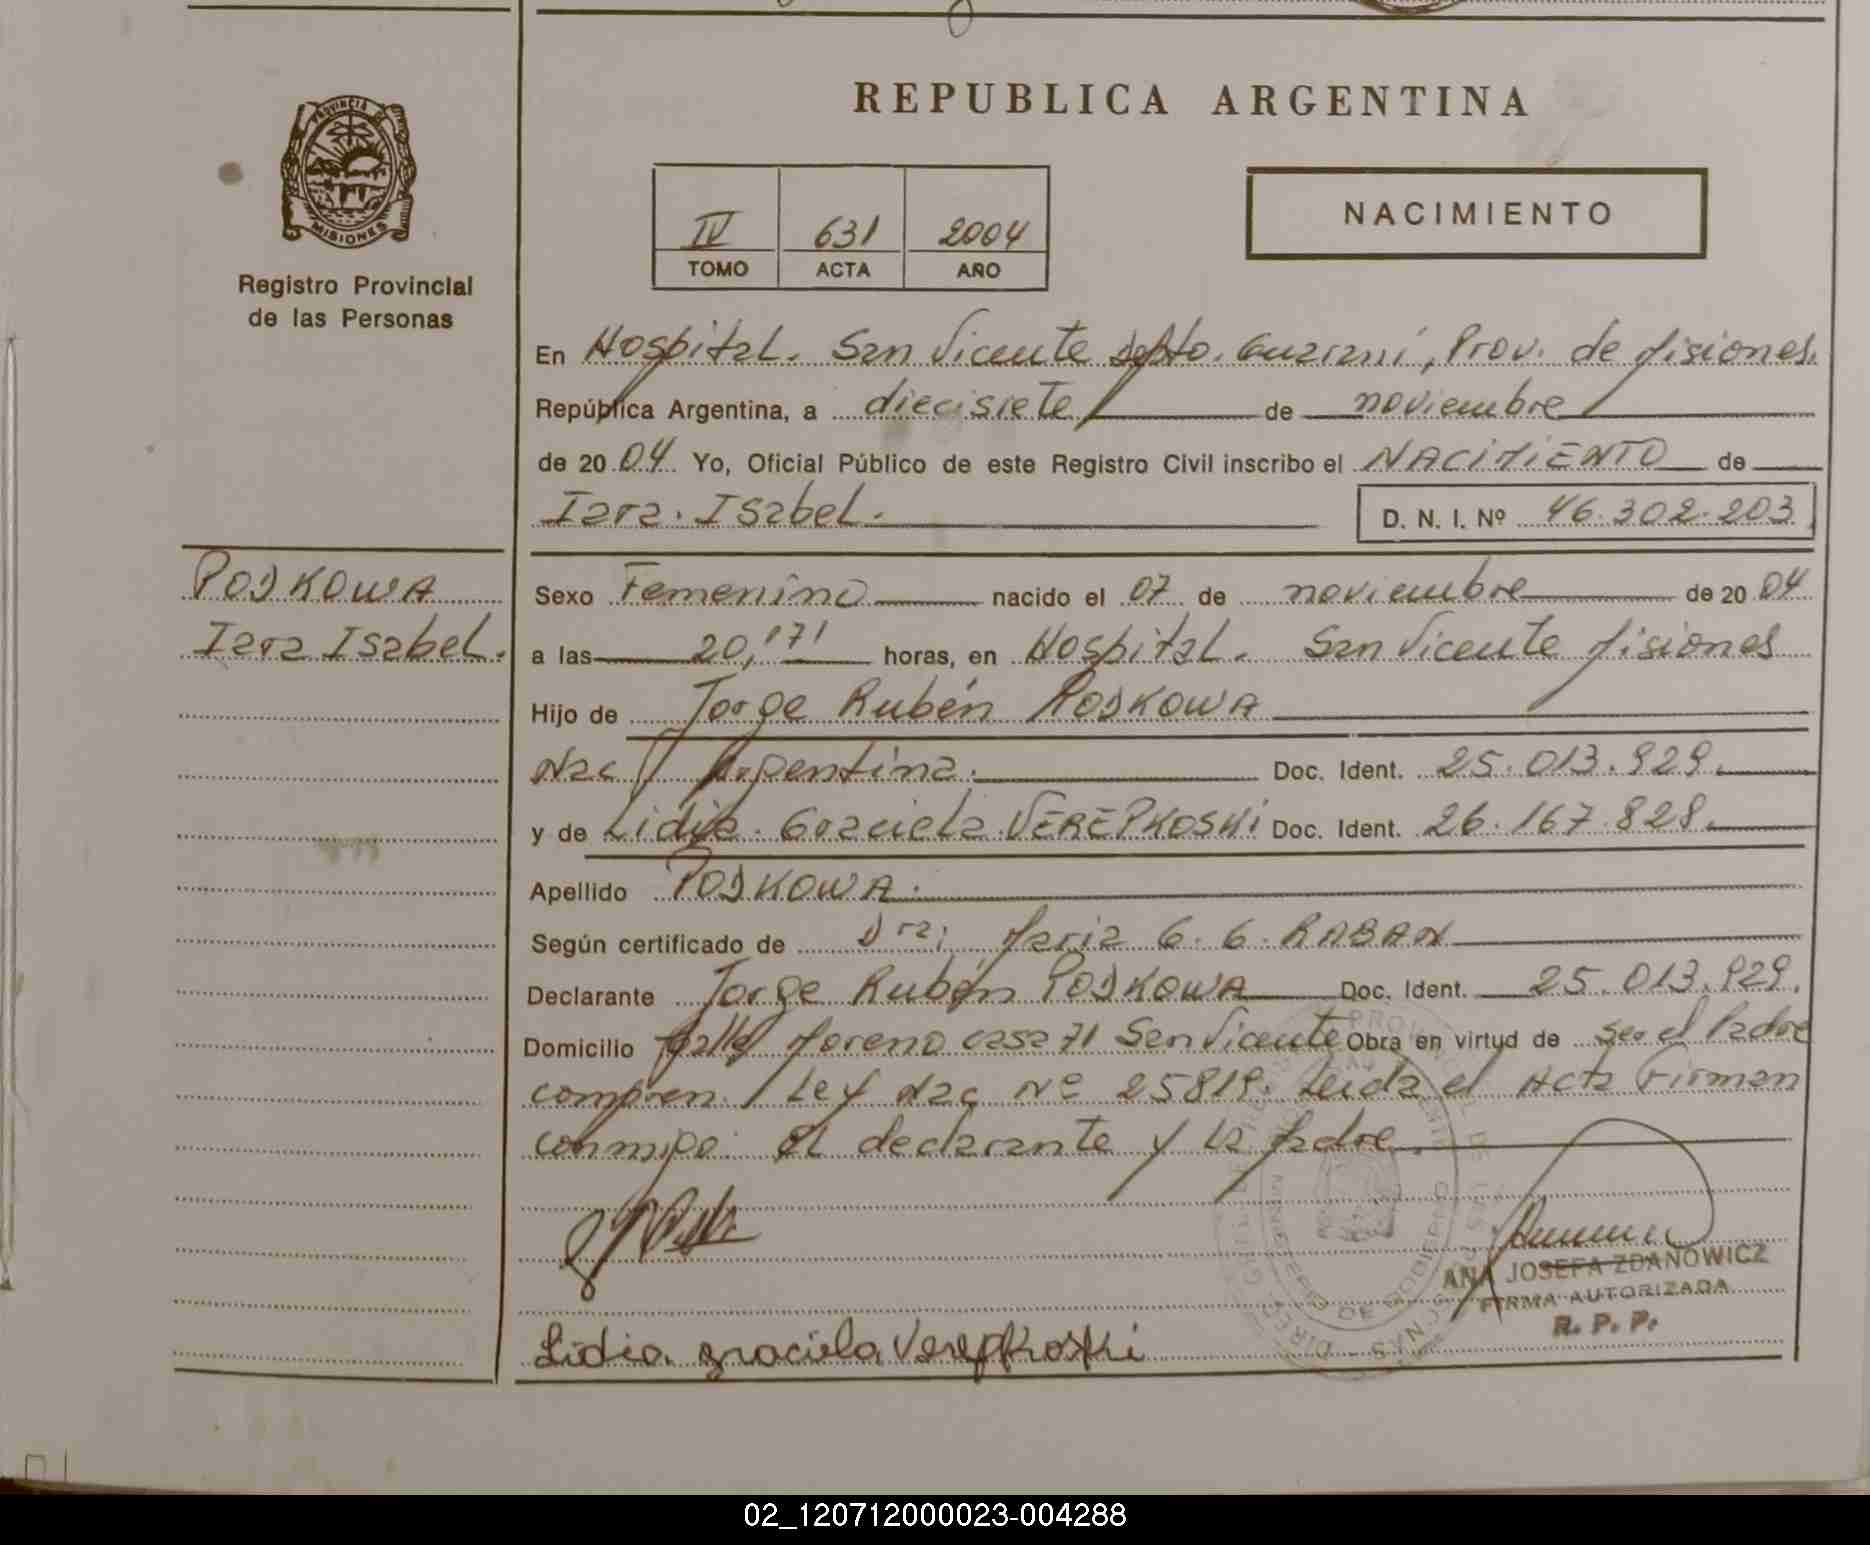 REPUBLICA ARGENTINA
PROVINCIA DE
MISIONES
Registro Provincial
de las Personas
IV 631 2004
TOMO ACTA AÑO
NACIMIENTO
En Hospital. San Vicente depto. Guaraní, Prov. de Misiones.
República Argentina, a diecisiete de noviembre
de 2004 Yo, Oficial Público de este Registro Civil inscribo el NACIMIENTO de
Iara. Isabel. D. N. I. Nº 46.302.203
PODKOWA
Iara Isabel.
Sexo Femenino nacido el 07 de noviembre de 2004
a las 20,17 horas, en Hospital. San Vicente Misiones
Hijo de Jorge Rubén PODKOWA
Nac Argentina. Doc. Ident. 25.013.929.
y de Lidia. Graciela. VEREPKOSKI Doc. Ident. 26.167.828.
Apellido PODKOWA.
Según certificado de Dra; Maria G. G. RABAN
Declarante Jorge Rubén PODKOWA Doc. Ident. 25.013.929.
Domicilio Calle Moreno casa 71 San Vicente Obra en virtud de ser el Padre
compren. Ley Nac Nº 25819. Leida el Acta Firman
conmigo. El declarante y la Madre.
ANA JOSEFA ZDANOWICZ
FIRMA AUTORIZADA
R. P. P.
Lidia graciela Verepkoski
02_120712000023-004288